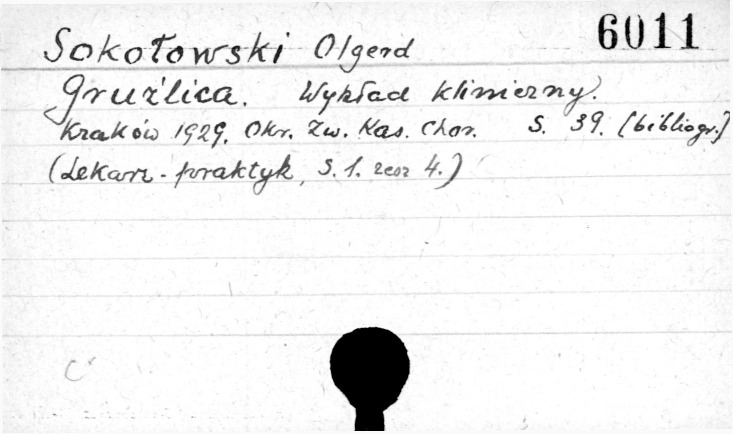 Sokołowski Olgerd 6011
Gruźlica. Wykład kliniczny.
Kraków 1929. Okr. Zw. Kas. Chor. S. 39. [bibliogr.]
(Lekarz-praktyk, S. 1. zesz 4.)
C